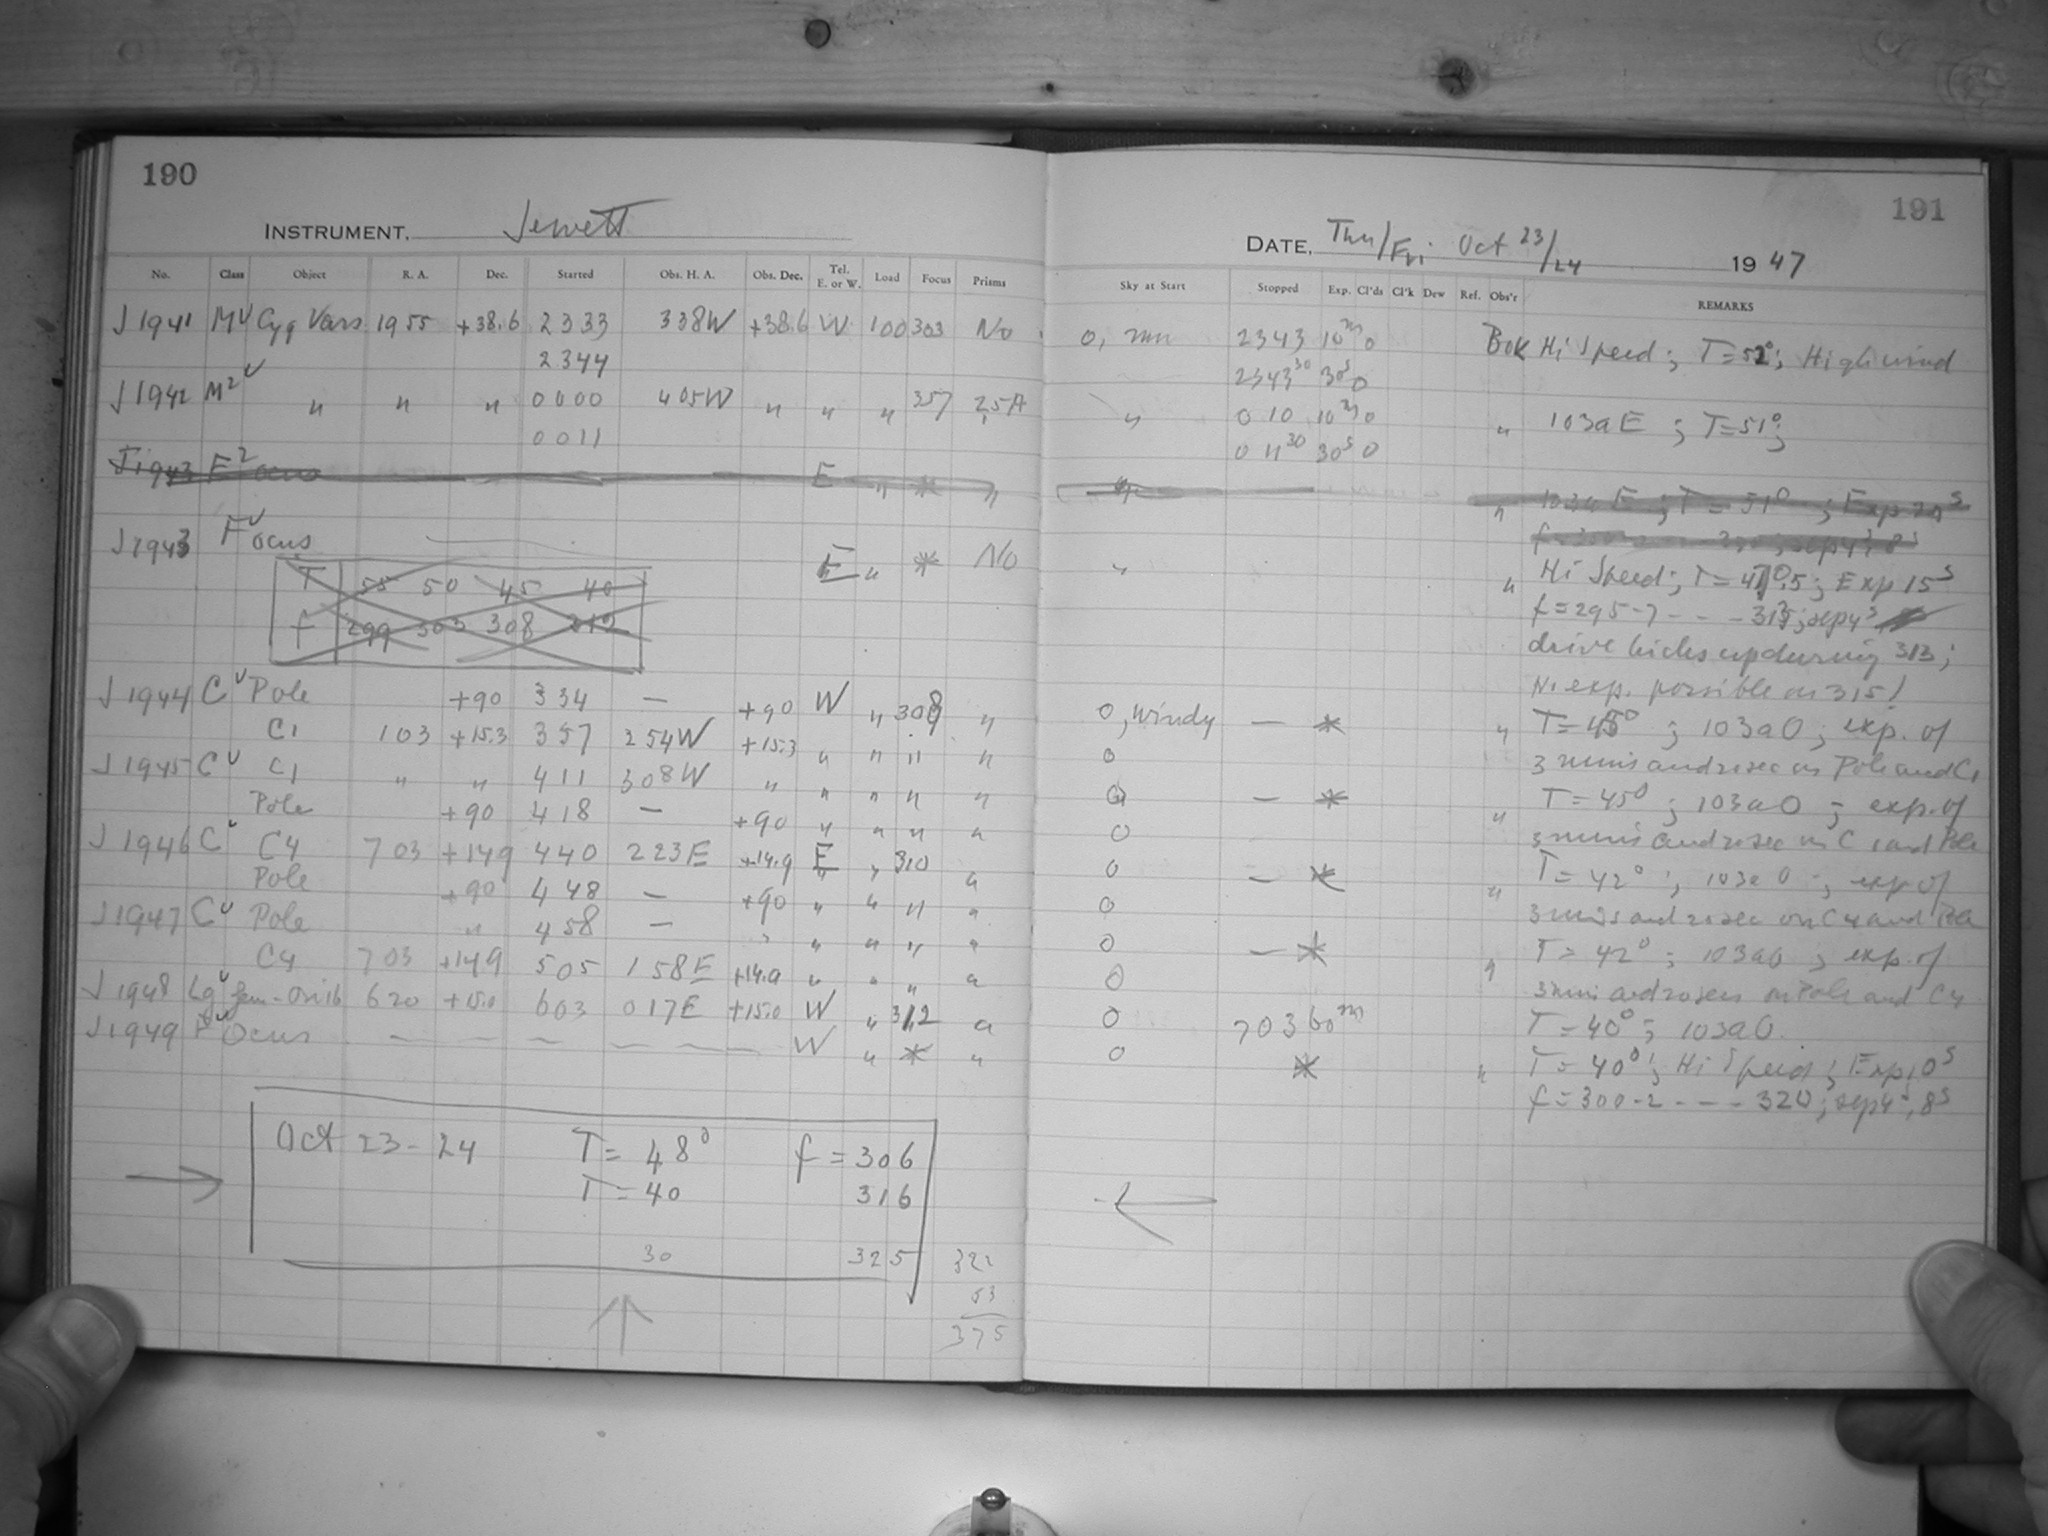 190
INSTRUMENT, Jewett
No. Class Object R. A. Dec. Started Obs. H. A. Obs. Dec. Tel. E. or W. Load Focus Prisms
J 1941 M Cyg Vars 1955 +38.6 2333 338W +38.6 W 100 303 No
2344
J 1942 M2 " " " 0000 405W " " " 357 2,5A
0011
J1943 F2ocus E " * "
J1943 Focus E " * No
T 55 50 45 40
f 299 303 308 312
J1944 C Pole +90 334 — +90 W " 308 "
C1 103 +15.3 357 254W +15.3 " " " "
J1945 C C1 " " 411 308W " " " " "
Pole +90 418 — +90 " " " "
J1946 C C4 703 +149 440 223E +14.9 E " 310
Pole +90 448 — +90 " " " "
J1947 C Pole " 458 — " " " " "
C4 703 +149 505 158E +14.9 " " " "
J1948 Lg Gem-Ori 16 620 +15.0 603 017E +15.0 W " 312 "
J1949 Focus — — — — — W " * "
Oct 23-24 T = 48° f = 306
T = 40 316
30 325 322
53
375
191
DATE, Thu/Fri Oct 23/24 1947
Sky at Start Stopped Exp. Cl'ds Cl'k Dew Ref. Obs'r REMARKS
0, 2343 10m 0 Bok Hi Speed; T=52°; High wind
2343 30 30s 0
" 0 10 10m 0 " 103aE ; T=51°;
0 11 30 30s 0
" " 103a E ; T = 51° ; Exp 20s
" " Hi Speed; T=47°.5; Exp 15s
f=295-7 - - - 313; sep 4s
drive kicks up during 313;
No exp. possible on 315!
0, Windy — * " T=45° ; 103aO; exp. of
0 3 mins and 20 sec on Pole and C1
0 — * " T=45° ; 103aO ; exp. of
0 3 mins and 20 sec on C1 and Pole
0 — * " T=42° ; 103aO ; exp of
0 3 mins and 20 sec on C4 and Pole
0 — * " T=42° ; 103aO ; exp. of
0 3 mins and 20 secs on Pole and C4
0 703 60m T=40° ; 103aO.
0 * " T=40°; Hi Speed; Exp 10s
f=300-2 - - - 320; sep 4s, 8s